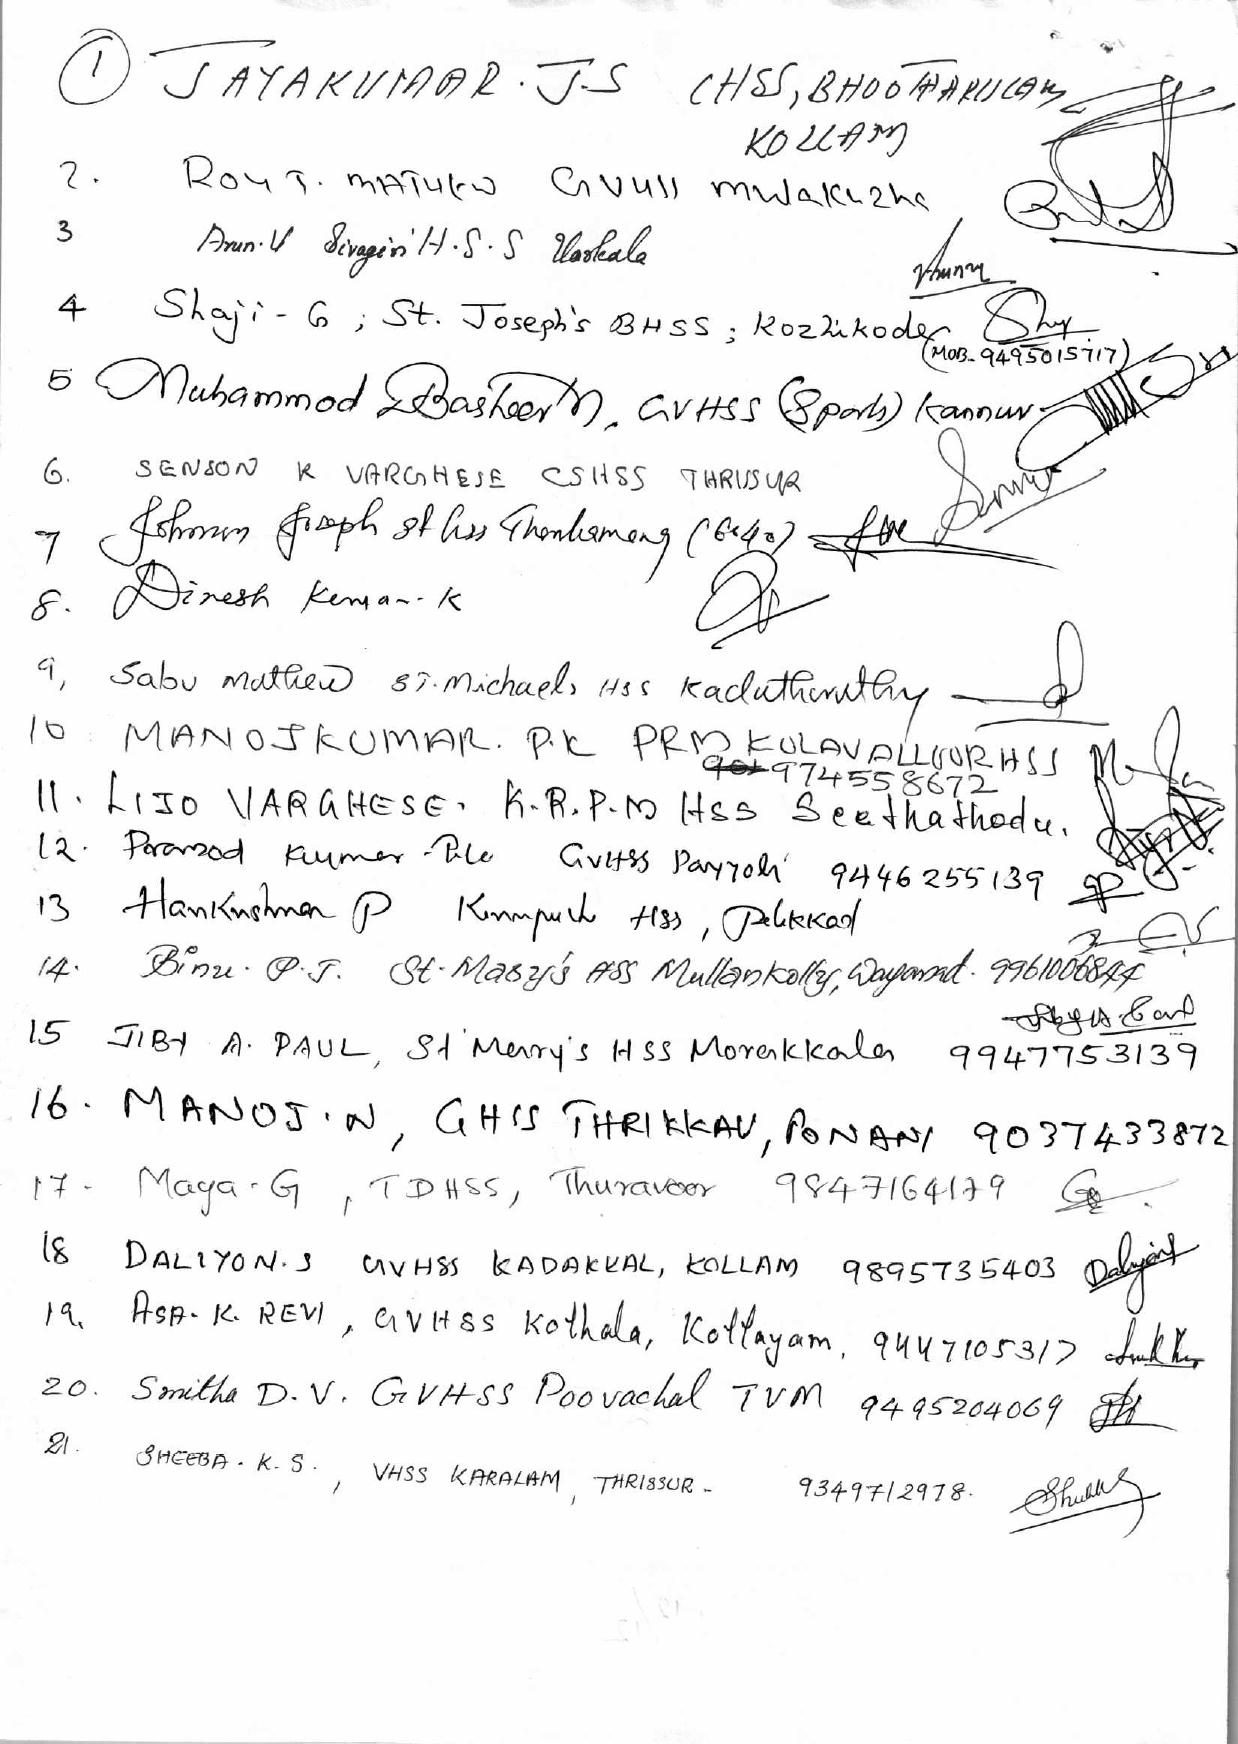 1 JAYAKUMAR. J.S CHSS, BHOOTHAKULAM
KOLLAM
2. Roy T. MATHEW GVHSS
3 Arun.V Sivagiri H.S.S Varkala
4 Shaji-G ; St. Joseph's BHSS ; Kozhikode
(MOB-9495015717)
5 Muhammod Basheer M, GVHSS (Sports) Kannur
6. SENSON K VARGHESE CSHSS THRISSUR
7 Johnson Joseph St Hss
8. Dinesh Kumar.K
9, Sabu Mathew ST.Michaels HSS Kaduthuruthy
10 MANOJKUMAR. P.K PRM KOLAVALLOOR HSS
974558672
11. LIJO VARGHESE. K.R.P.M HSS Seethathodu.
12. Pramod Kumar GVHSS Payyoli 9446255139
13 Harikrishnan P HSS,
14. Binu. P.J. St. Mary's HSS Mullankolly, Wayanad. 9961006844
15 JIBY A. PAUL, St Merry's HSS Morakkala 9947753139
16. MANOJ.N, GHSS THRIKKAV, PONANI 9037433872
17. Maya.G, TDHSS, Thuravoor 9847164179
18 DALIYON.S GVHSS KADAKKAL, KOLLAM 9895735403
19. ASA.K. REVI, GVHSS Kothala, Kottayam, 9447105317
20. Smitha D.V. GVHSS Poovachal TVM 9495204069
21. SHEEBA. K.S., VHSS KARALAM, THRISSUR- 9349712978.